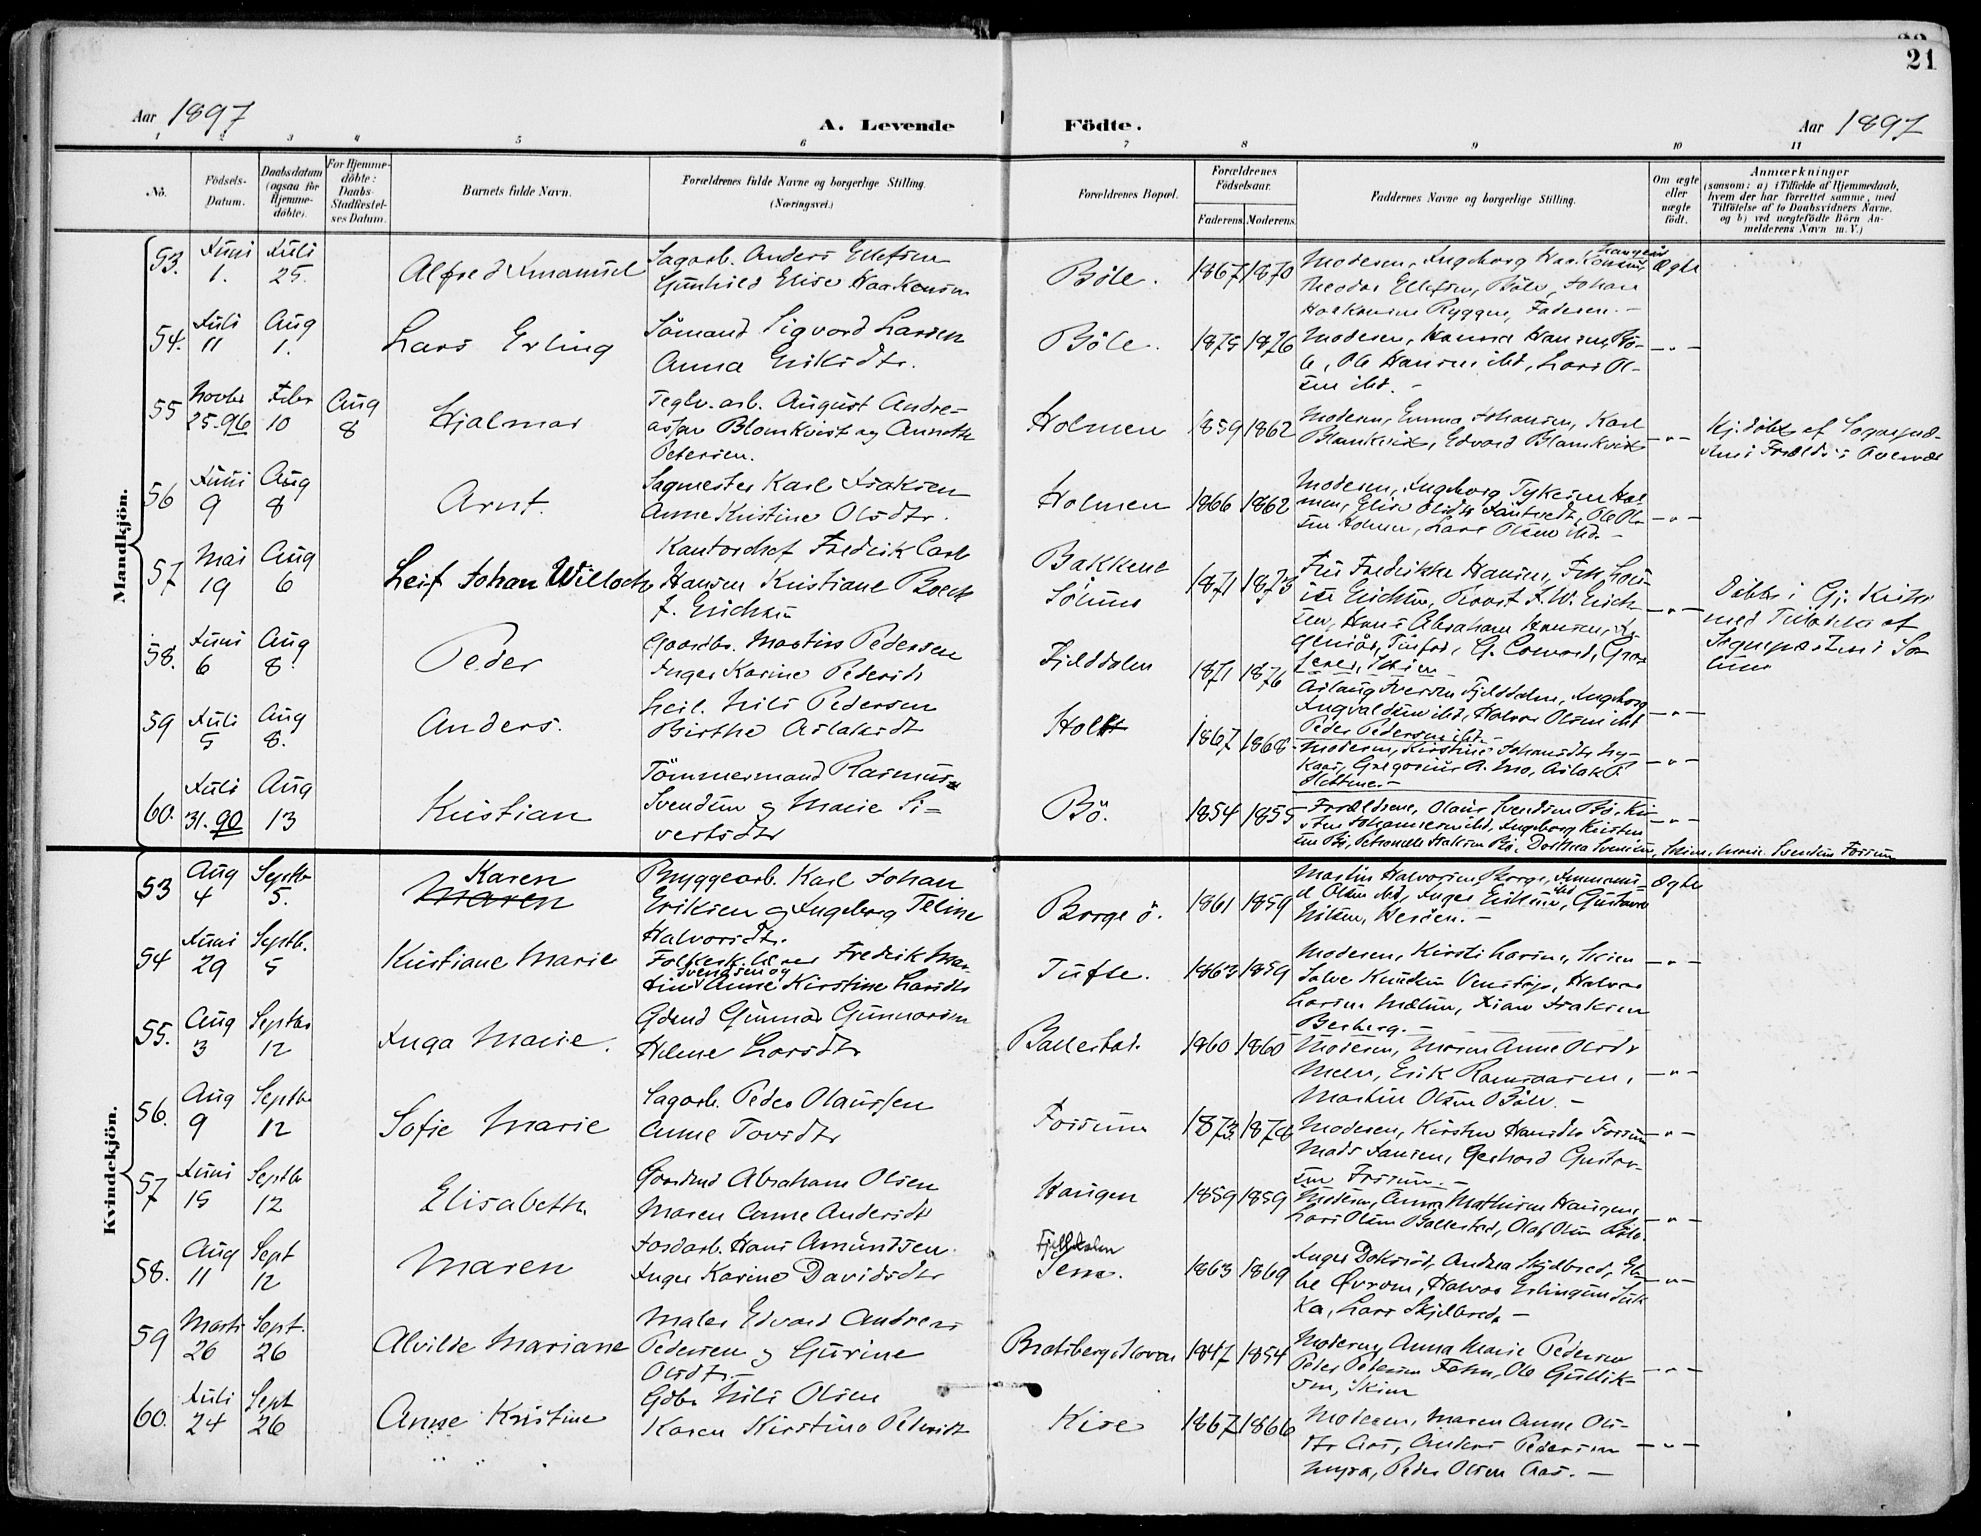 21
Aar 1897
A. Levende Födte.
Aar 1897
1 2 3 4 5 6 7 8 9 10 11
No.
Födsels-Datum.
Daabsdatum (ogsaa för Hjemme-döbte).
For Hjemme-döbte: Daabs-Stadfæstel-ses Datum.
Barnets fulde Navn.
Forældrenes fulde Navne og borgerlige Stilling. (Næringsvei.)
Forældrenes Bopæl.
Forældrenes Födselsaar.
Faderens. Moderens.
Faddernes Navne og borgerlige Stilling.
Om ægte eller uægte födt.
Anmærkninger
(saasom: a) i Tilfælde af Hjemmedaab,
hvem der har forrettet samme, med
Tilföielse af to Daabsvidners Navne.
og b) ved uægtefödte Börn An-
melderens Navn m. V.)
Mandkjön.
53. Juni 1. Juli 25. Alfred Emanuel
Sagarb. Anders Ellefsen
Gunhild Elise Haakensen
Böle. 1867 1870
Moderen, Ingeborg Haakonsen,
Theodor Ellefsen, Böle, Johan
Haakonsen Ryggen, Faderen. -
Ægte
54. Juli 11 Aug 1. Lars Erling
Sömand Sigvard Larsen
Anna Eriksdtr.
Böle. 1875 1876
Moderen, Hanna Hansen, Bö-
le, Ole Hansen ibd, Lars Ol-
sen ibd. -
-"-
55 Novbr 25.96 Febr 10 Aug 8 Hjalmar
Teglv.arb. August Andre-
assen Blomkvist og Annette
Petersen.
Holmen 1859 1862
Moderen, Emma Johansen, Karl
Blomkvist, Edvard Blomkvist
-"-
Hj.döbt af
56 Juni 9 Aug 8 Arnt.
Sagmester Karl Isaksen
Anne Kristine Olsdtr.
Holmen 1866 1862
Moderen, Ingeborg
Holmen, Lars Olsen ibd. -
-"-
57 Mai 19 Aug 6 Leif Johan Willoch
Kontorchef Fredrik Carl
Hansen Kristiane Boeck
f. Erichsen
Bakkene
Solum
1871 1873
Fru Fredrikke Hansen, Frk Lou-
ise Erichsen, Provst J. W. Erich-
sen, Hans Abraham Hansen,
-"-
Döbt i Gj. Kirke
med Tilladelse af
Sognepresten i So-
lum
58. Juni 6 Aug 8. Peder
Gaardbr. Martin Pedersen
Inger Karine Pedersdt
Fjelddalen 1871 1876
Aslaug Iversen Fjelddalen, Ingeborg
Ingvaldsen ibd, Halvor Olsen ibd
Peder Pedersen ibd. -
-"-
59 Juli 5 Aug 8. Anders.
Leil. Nils Pedersen
Birthe Aslaksdt
Holt 1867 1868
Moderen, Kirstine Johansdtr
Gregorius A. Mo, Aslak P.
-"-
60. Juli 31.90 Aug 13 Kristian
Tömmermand Rasmus
Svendsen og Marie Si-
vertsdtr
Bö. 1854 1855
Forældrene, Olaus Svendsen Bö,
-"-
Kvindekjön.
53 Aug 4 Septbr 5. Karen
Maren
Bryggearb. Karl Johan
Eriksen og Ingeborg Teline
Halvorsdtr.
Borge ö. 1861 1859
Martin Halvorsen Borge,
Olsen ibd, Inger Eriksen, Gustava
Nilsen, Herøen. -
Ægte
54 Juni 29 Septb. 5 Kristiane Marie
Fredrik Mar-
tin Svendsen og Anne Kirstine Larsdtr
Tufte. 1863 1859
Moderen, Kirsti Larsen, Skien
Salve Knudsen Venstöp, Halvor
Larsen Mælum, Isak Isaksen
Berberg. -
-"-
55. Aug 3 Septbr 12 Inga Marie.
Gdmd Gunnar Gunnarsen
Helene Larsdtr
Ballestad. 1860 1860
Moderen, Maren Anne Olsdt
Melen, Erik Rasmussen,
Martin Olsen Böle. -
-"-
56. Aug 9 Septbr 12 Sofie Marie
Sagarb. Peder Olaussen
Anne Tovsdtr
Fossum 1873 1876
Moderen, Kirsten Hansdtr Fossum
Mads Jansen, Gerhard Gustav-
sen Fossum. -
-"-
57 Juni 15 Septbr 12 Elisabeth.
Gaardmd Abraham Olsen
Maren Anne Andersdt
Haugen 1859 1859
Moderen, Anna Mathisen Haugen,
Lars Olsen Ballestad, Olaf Olsen Böle.
-"-
58. Aug 11 Sept 12 Maren
Jordarb. Hans Amundsen.
Inger Karine Davidsdtr
Fjelldalen
Sem. 1863 1869
Inger Doksröd, Andrea Skjelbred,
Øvrom, Halvor Erlingsen
Lars Skjelbred. -
-"-
59 Marts 26 Sept. 26 Alvilde Mariane
Maler Edvard Andreas
Pedersen og Gurine
Olsdtr. -
Bratsbergkleven 1847 1854
Moderen, Anna Marie Pedersen
Peder Pedersen Falm, Ole Gullik-
sen, Skien
-"-
60. Juli 24 Sept 26 Anne Kristine
Gdbr Nils Olsen
Karen Kirstine Pedersdt
Kise 1867 1866
Moderen, Maren Anne Ols-
dtr Aas, Anders Pedersen
Myra, Peder Olsen Aas. -
-"-